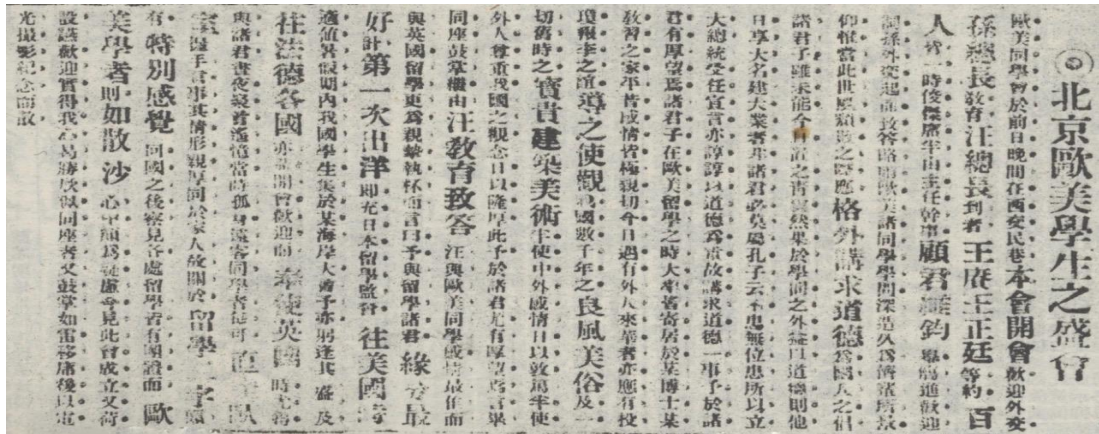 ◎北京歐美學生之盛會
歐美同學曾於前日晚間在西交民巷本會開會歡迎外交
孫總長教育汪總長到者王賡王正廷等約百
人皆一時俊傑席半由主任幹事顧君維鈞舉觴進歡迎
詞孫外交起而致答略謂歐美諸同學學問深造久為儕輩所敬
仰惟當此世風頹敗之際應格外講求道德為國人之倡
諸君子雖未能今日置之青雲然果於學問之外益以道德則他
日享大名建大業者非諸君必莫屬孔子云不患無位患所以立
大總統受任宣言亦諄諄以道德為重故講求道德一事予於諸
君有厚望焉諸君子在歐美留學之時大率皆寄居於某博士某
教習之家平昔感情皆極親切今日遇有外人來華者亦應有投
瓊報李之誼導之使觀我國數千年之良風美俗及一
切舊時之寶貴建築美術牢使中外感情日以敦篤牢使
外人尊重我國之觀念日以隆厚此予於諸君尤有厚望焉言畢
同座鼓掌機由汪教育致答汪與歐美同學感情最佳而
與英國留學更為親摯執杯而言曰予與留學諸君緣分最
好計第一次出洋即充日本留學監督往美國時
適值暑假期內我國學生集於某海岸大會予亦躬逢其盛及
往法德各國亦開會歡迎而奉使英國時尤得
與諸君晝夜聚首遙憶當時孤身遠客同學者
其情形親厚同於家人故關於留學
有特別感覺回國之後察見各處留學皆有團體而歐
美學者則如散沙心中頗為 慮今見此會成立又荷
設讌歡迎實得我心曷勝欣 同座者又鼓掌如雷移席後以電
光撮影紀念而散